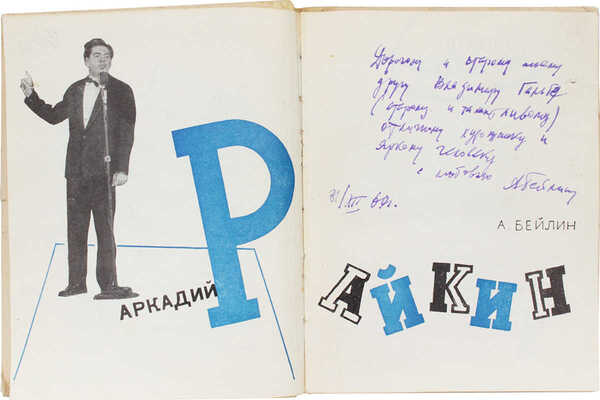 АРКАДИЙ
Р
Дорогому и старому моему
другу Владимиру Гальба
(старому и талантливому)
отличному художнику и
яркому человеку
с любовью А Бейлин
XII 60г.
А. БЕЙЛИН
АЙКИН